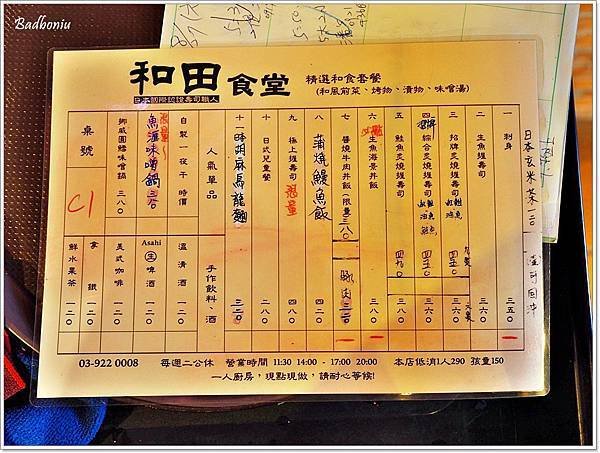 Badboniu
和田食堂
日本國際認證壽司職人
精選和食套餐
(和風前菜、烤物、漬物、味噌湯)
一 刺身 三五〇
二 生魚握壽司 二六〇
三 招牌炙燒握壽司 三六〇
四 綜合炙燒握壽司 三六〇
五 鮭魚炙燒握壽司
六 生魚海景丼飯 三八〇
七 醬燒牛肉丼飯(限量) 三八〇
豚肉 三二〇
八 蒲燒鰻魚飯
九 極上握壽司 限量 四八〇
十 日式兒童餐 二八〇
十一 胡麻烏龍麵 三二〇
人氣單品
手作飲料、酒
自製一夜干 時價
溫清酒 一二〇
魚滙味噌鍋
Asahi 生啤酒 一二〇
挪威圓鱈味噌鍋 三八〇
美式咖啡 一二〇
拿鐵 一二〇
桌號 C1
鮮水果茶 一二〇
日本玄米茶 一二〇
僅可回沖
03-922 0008
每週二公休
營業時間 11:30 14:00 - 17:00 20:00
本店低消1人290 孩童150
一人廚房，現點現做，請耐心等候!